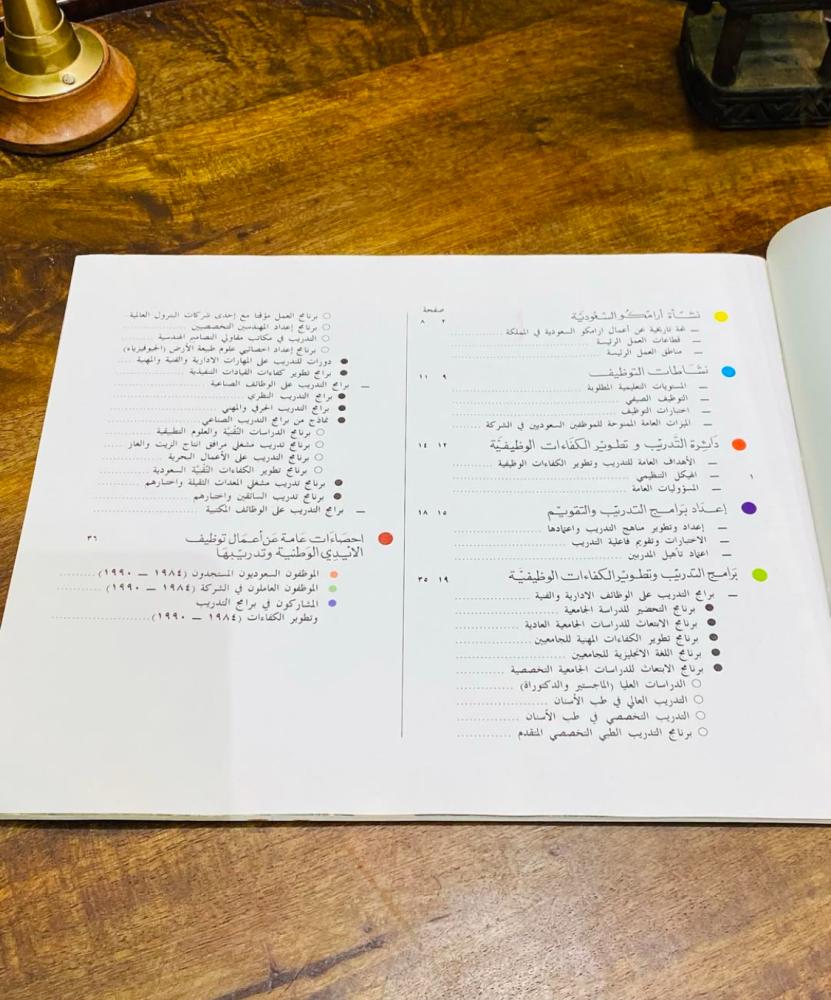 صفحة
نشأة أرامكو السعودية ٢ ٨
— لمحة تاريخية عن أعمال ارامكو السعودية في المملكة
— قطاعات العمل الرئيسة
— مناطق العمل الرئيسة
نشاطات التوظيف ٩ ١١
— المستويات التعليمية المطلوبة
— التوظيف الصيفي
— اختبارات التوظيف
— الميزات العامة الممنوحة للموظفين السعوديين في الشركة
دائرة التدريب و تطوير الكفاءات الوظيفية ١٢ ١٤
— الأهداف العامة للتدريب وتطوير الكفاءات الوظيفية
— الهيكل التنظيمي
— المسؤوليات العامة
١
إعداد برامج التدريب والتقويم ١٥ ١٨
— إعداد وتطوير مناهج التدريب واعتمادها
— الاختبارات وتقويم فاعلية التدريب
— اعتماد تأهيل المدربين
برامج التدريب وتطوير الكفاءات الوظيفية ١٩ ٣٥
— برامج التدريب على الوظائف الادارية والفنية
● برنامج التحضير للدراسة الجامعية
● برنامج الابتعاث للدراسات الجامعية العادية
● برنامج تطوير الكفاءات المهنية للجامعيين
● برنامج اللغة الانجليزية للجامعيين
● برنامج الابتعاث للدراسات الجامعية التخصصية
○ الدراسات العليا (الماجستير والدكتوراة)
○ التدريب العالي في طب الأسنان
○ التدريب التخصصي في طب الأسنان
○ برنامج التدريب الطبي التخصصي المتقدم
○ برنامج العمل مؤقتا مع إحدى شركات البترول العالمية
○ برنامج إعداد المهندسين التخصصيين
○ التدريب في مكاتب مقاولي التصاميم الهندسية
○ برنامج إعداد اخصائيي علوم طبيعة الأرض (الجيوفيزياء)
● دورات للتدريب على المهارات الادارية والفنية والمهنية
● برامج تطوير كفاءات القيادات التنفيذية
— برامج التدريب على الوظائف الصناعية
● برامج التدريب النظري
● برامج التدريب الحرفي والمهني
● نماذج من برامج التدريب الصناعي
○ برنامج الدراسات التقنية والعلوم التطبيقية
○ برنامج تدريب مشغلي مرافق انتاج الزيت والغاز
○ برنامج التدريب على الأعمال البحرية
○ برنامج تطوير الكفاءات التقنية السعودية
● برنامج تدريب مشغلي المعدات الثقيلة واختبارهم
● برنامج تدريب السائقين واختبارهم
— برامج التدريب على الوظائف المكتبية
احصاءات عامة عن أعمال توظيف ٣٦
الايدي الوطنية وتدريبها
الموظفون السعوديون المستجدون (١٩٨٤ — ١٩٩٠)
الموظفون العاملون في الشركة (١٩٨٤ — ١٩٩٠)
المشاركون في برامج التدريب
وتطوير الكفاءات (١٩٨٤ — ١٩٩٠)